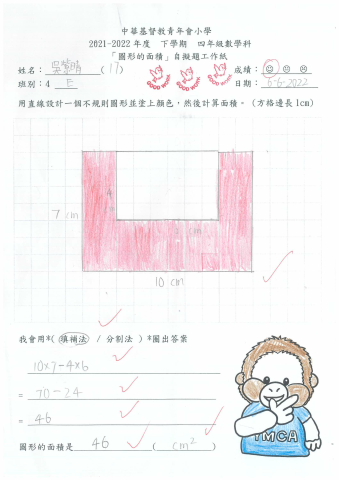 中華基督教青年會小學
2021-2022 年度 下學期 四年級數學科
「圖形的面積」自擬題工作紙
姓名： 吳 (17) GOOD WORK GOOD WORK GOOD WORK 成績：
班別：4 E 日期：6-6-2022
用直線設計一個不規則圖形並塗上顏色，然後計算面積。（方格邊長1cm）
4
7 cm
cm
10 cm
我會用*( 填補法 / 分割法 ) *圈出答案
10×7-4×6
= 70-24
= 46
圖形的面積是 46 ( cm² )
YMCA